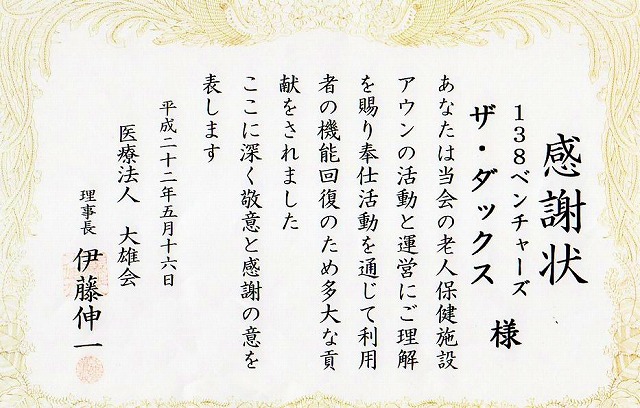 感謝状
138ベンチャーズ
ザ・ダックス 様
あなたは当会の老人保健施設
アウンの活動と運営にご理解
を賜り奉仕活動を通じて利用
者の機能回復のため多大な貢
献をされました
ここに深く敬意と感謝の意を
表します
平成二十二年五月十六日
医療法人 大雄会
理事長 伊藤伸一